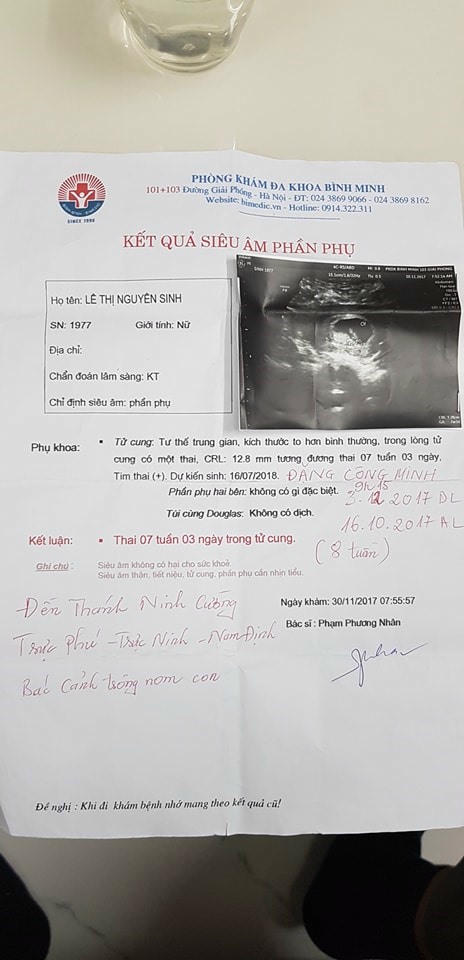 PHÒNG KHÁM ĐA KHOA BÌNH MINH
101+103 Đường Giải Phóng - Hà Nội - ĐT: 024 3869 9066 - 024 3869 8162
Website: bimedic.vn - Hotline: 0914.322.311
SINCE 1996
KẾT QUẢ SIÊU ÂM PHẦN PHỤ
Họ tên: LÊ THỊ NGUYÊN SINH
SN: 1977 Giới tính: Nữ
Địa chỉ:
Chẩn đoán lâm sàng: KT
Chỉ định siêu âm: phần phụ
Phụ khoa:
• Tử cung: Tư thế trung gian, kích thước to hơn bình thường, trong lòng tử
cung có một thai, CRL: 12.8 mm tương đương thai 07 tuần 03 ngày,
Tim thai (+). Dự kiến sinh: 16/07/2018.
ĐẶNG CÔNG MINH
Phần phụ hai bên: không có gì đặc biệt.
9h15
3.12 2017 DL
Túi cùng Douglas: Không có dịch.
16.10.2017 AL
Kết luận: • Thai 07 tuần 03 ngày trong tử cung.
(8 tuần)
Ghi chú : Siêu âm không có hại cho sức khoẻ.
Siêu âm thận, tiết niệu, tử cung, phần phụ cần nhịn tiểu.
Đền Thánh Ninh Cường
Trực Phú - Trực Ninh - Nam Định
Bác Cảnh trông nom con
Ngày khám: 30/11/2017 07:55:57
Bác sĩ : Phạm Phương Nhân
Đề nghị : Khi đi khám bệnh nhớ mang theo kết quả cũ!